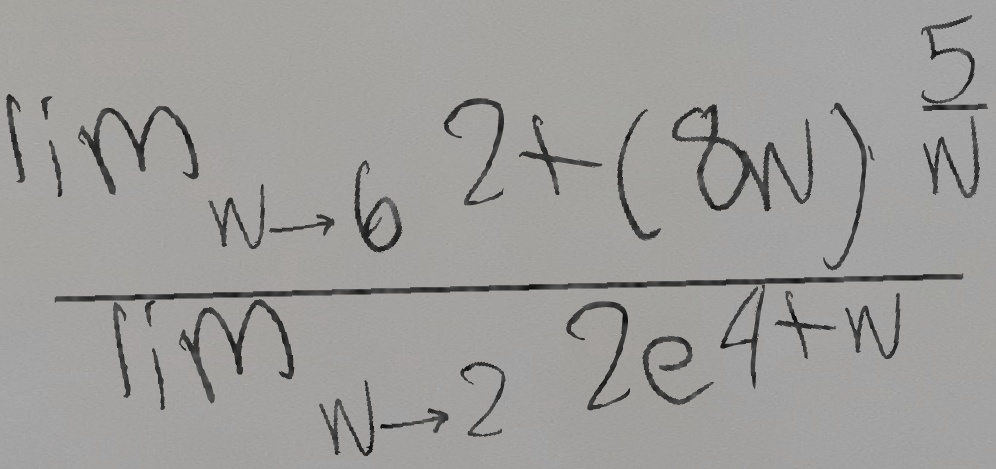 \frac{\lim_{w \to 6} 2+(8w)^{\frac{5}{w}}}{\lim_{w \to 2} 2e^{4+w}}